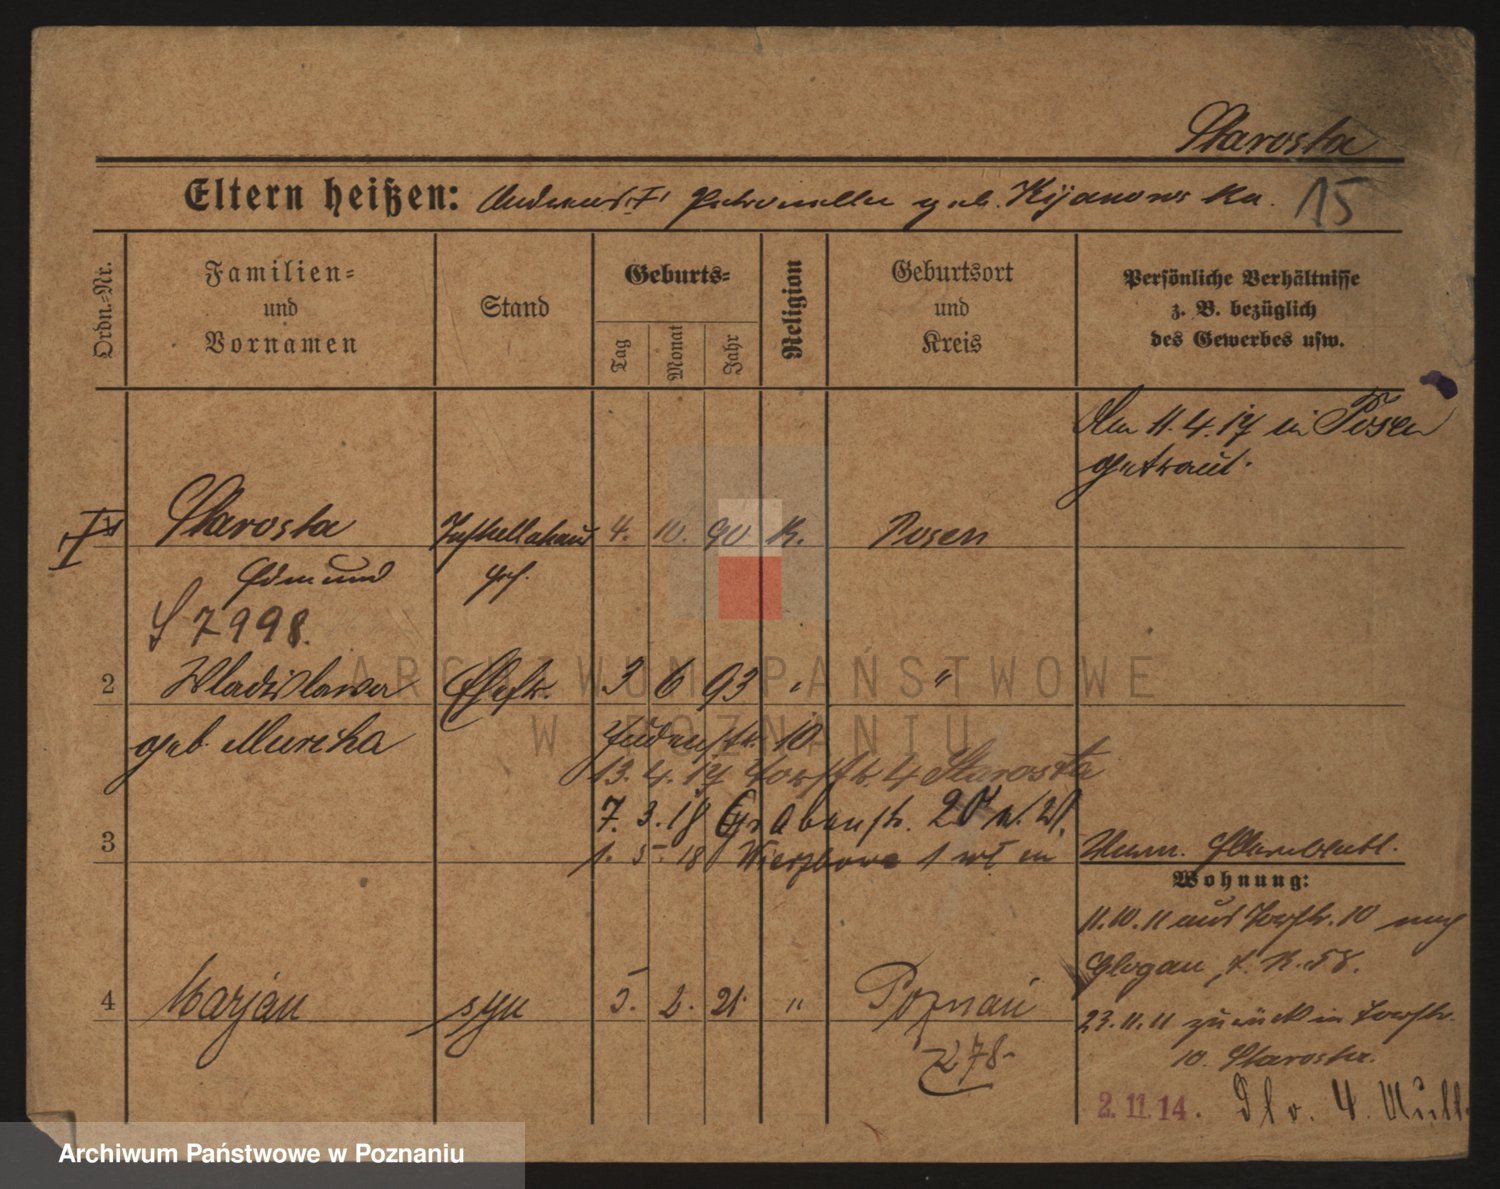 Starosta
Eltern heißen: Petronella geb. Kijanowska. 15
Ordn.-Nr.
Familien-
und
Vornamen
Stand
Geburts-
Tag
Monat
Jahr
Religion
Geburtsort
und
Kreis
Persönliche Verhältnisse
z. B. bezüglich
des Gewerbes usw.
Am 11.4.17 in Posen
getraut.
Starosta 4. 10. 90 K. Posen
Edmund
S 7998.
2 Wladislawa Ehefr. 3 6 93 " "
geb. Mureka
Judenstr. 10
13. 4. 17 Torstr. 4 Starosta
7. 3. 18 Grabenstr.
3
1. 5. 18 1
Wohnung:
11.10.11 aus Torstr. 10 nach
Glogau,
23.11.11 zurück in Torstr.
10. Starosta.
4 Marjan syn 5. 2. 21. " Poznań
278.
2.11.14. 4.
ARCHIWUM PAŃSTWOWE
W POZNANIU
Archiwum Państwowe w Poznaniu